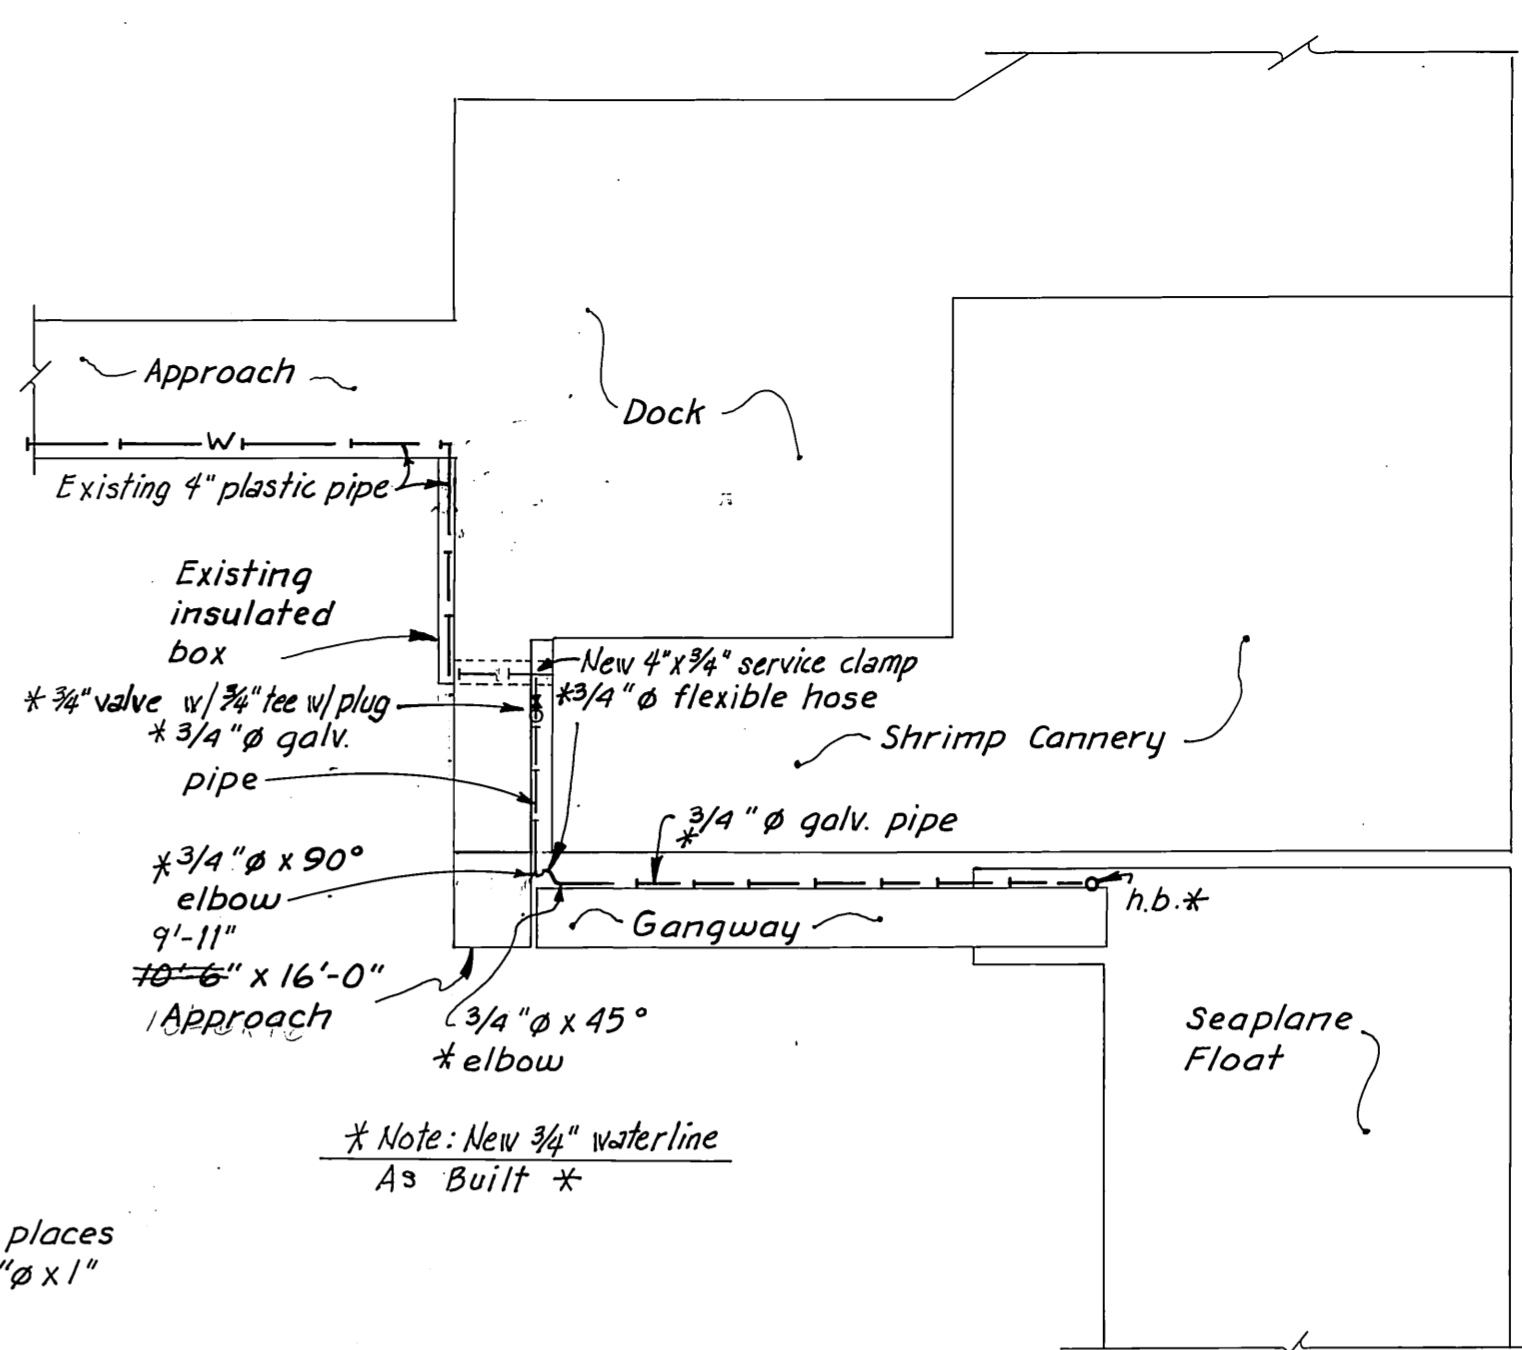 Approach
Dock
W
Existing 4" plastic pipe
Existing
insulated
box
New 4"x 3/4" service clamp
* 3/4" valve w/ 3/4" tee w/ plug
* 3/4"ø flexible hose
* 3/4"ø galv.
pipe
Shrimp Cannery
* 3/4"ø galv. pipe
* 3/4"ø x 90°
elbow
h.b.*
Gangway
9'-11"
10'-6" x 16'-0"
Approach
3/4"ø x 45°
* elbow
Seaplane
Float
* Note: New 3/4" waterline
As Built *
places
"ø x 1"